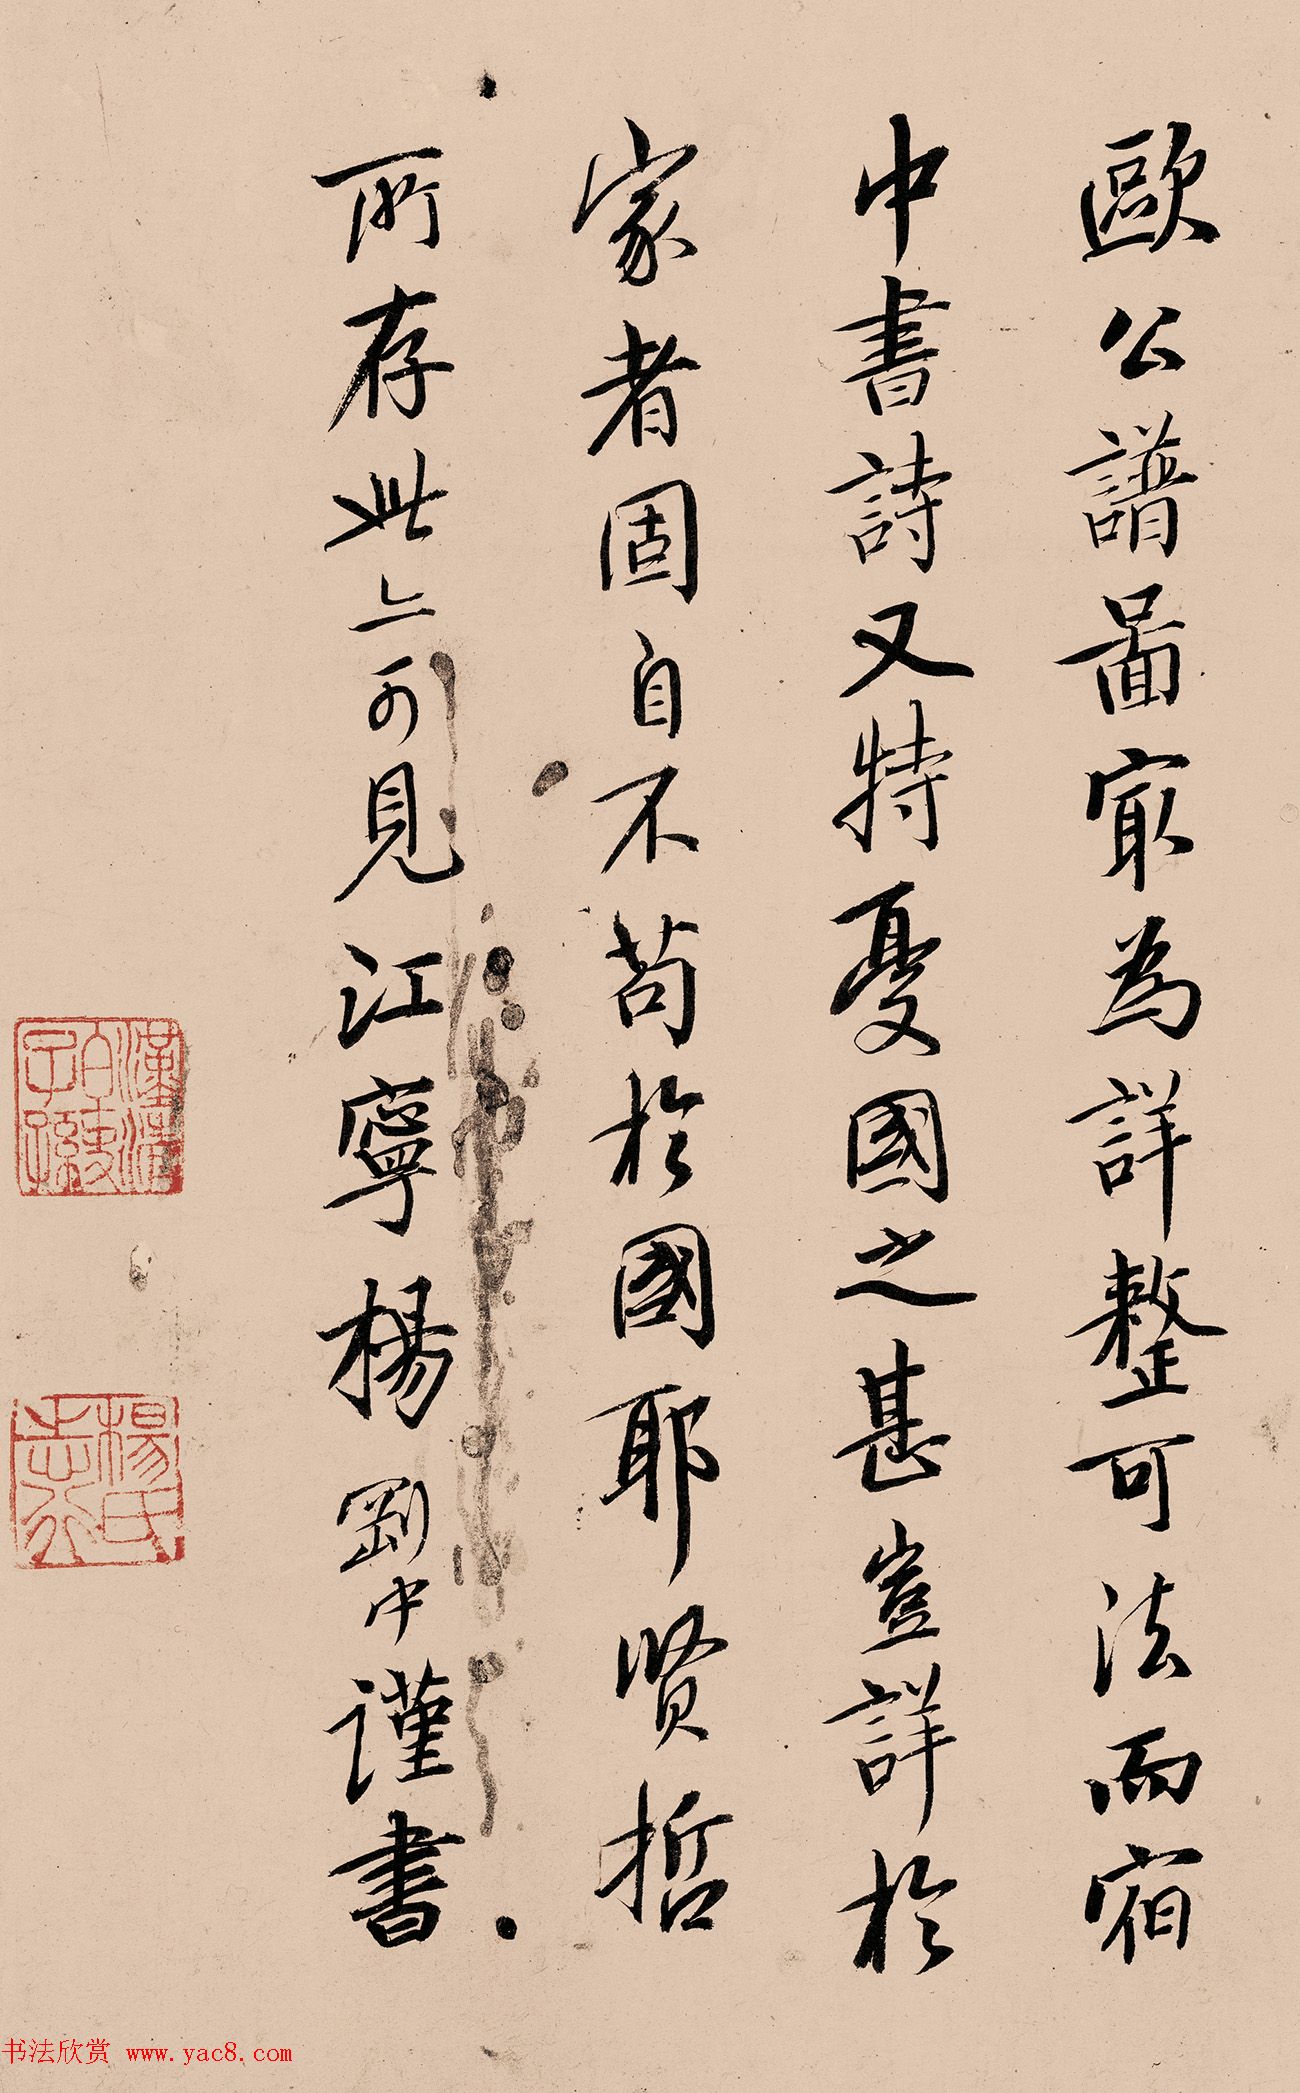 歐公譜圖寂為詳整可法而宿
中書詩又特憂國之甚豈詳於
家者固自不苟於國耶賢哲
所存此亦可見江寧楊剛中謹書
楊氏志行
书法欣赏 www.yac8.com